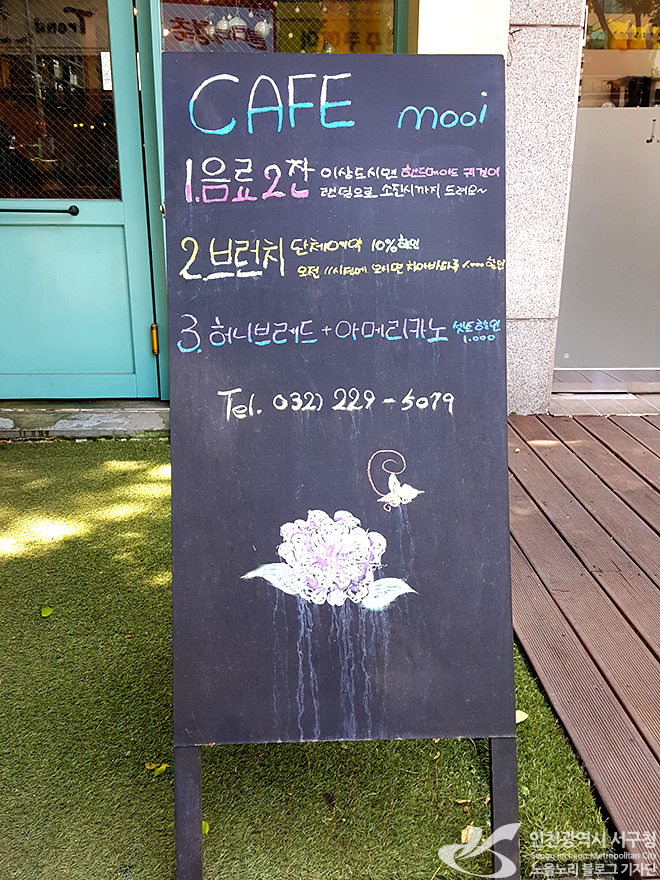 CAFE mooi
1. 음료 2잔 이상드시면 핸드메이드 귀걸이
랜덤으로 소진시까지 드려요~
2 브런치 단체예약 10% 할인
오전 11시전에 오시면 치아바타류 1.000 할인
3. 허니브레드 + 아메리카노 셋트할인
1.000
Tel. 032) 229-5079
인천광역시 서구청
Seogu Incheon Metropolitan City
노을노리 블로그 기자단